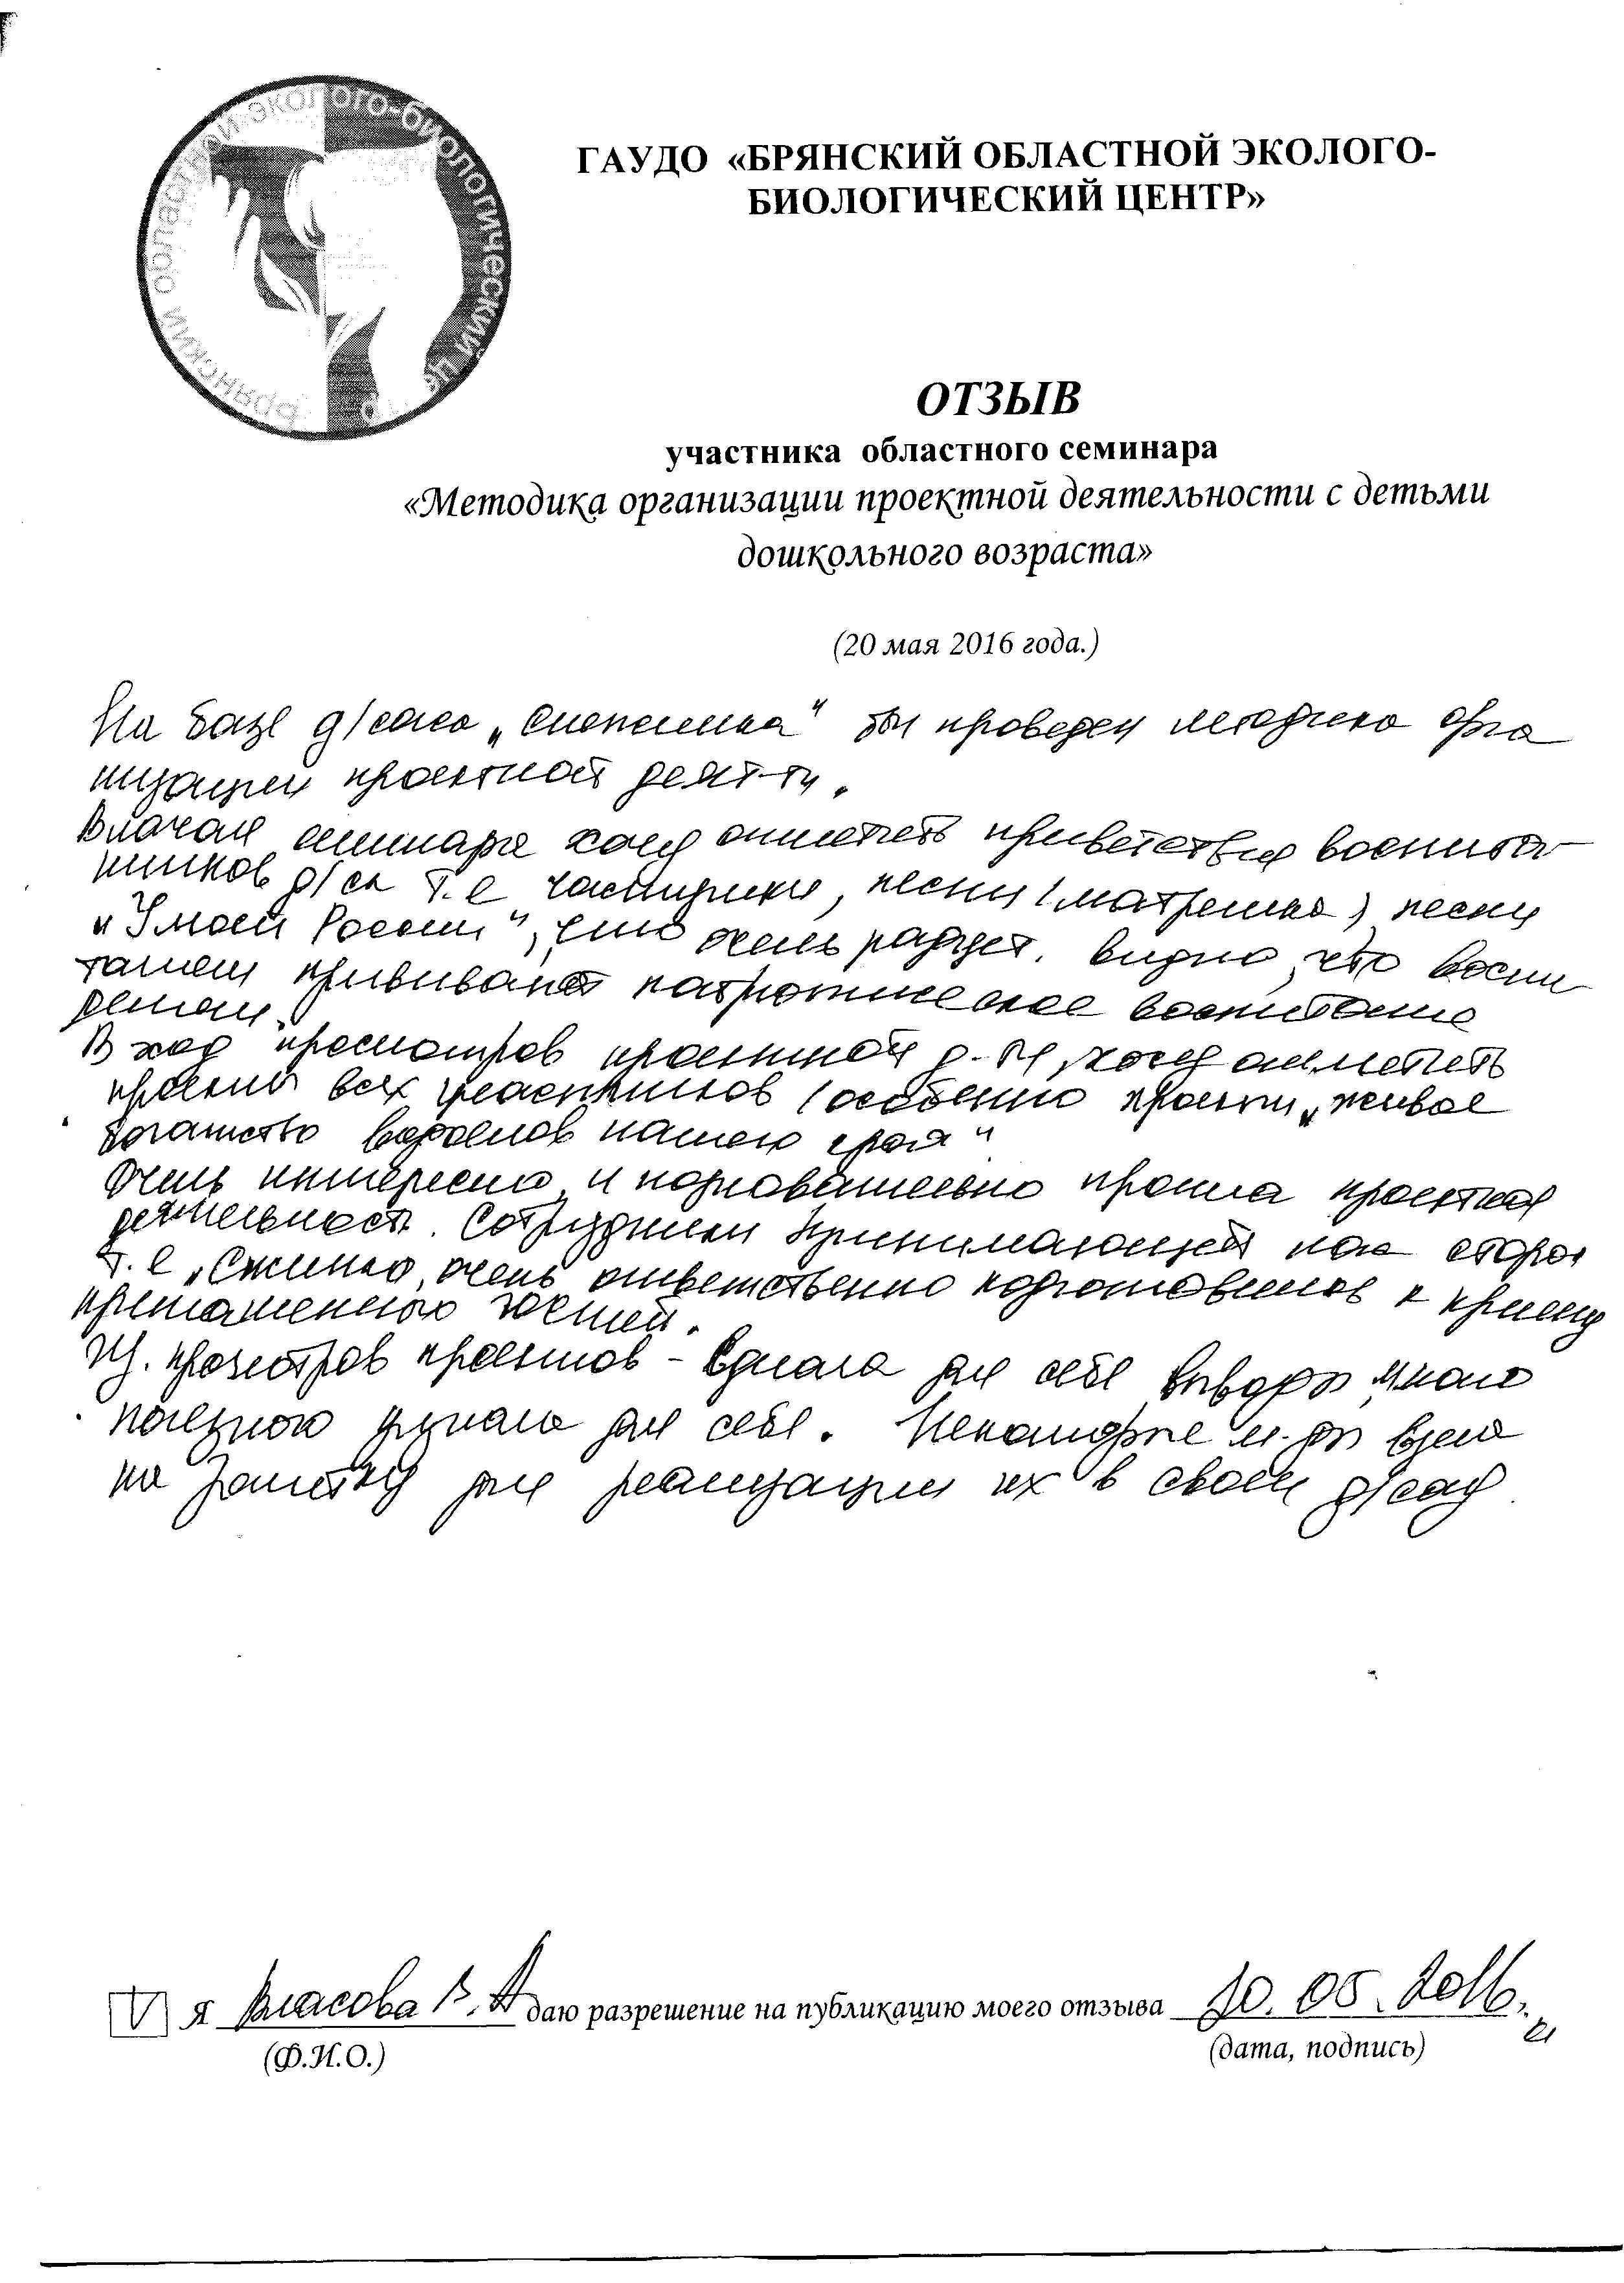 Брянский областной эколого-биологический це р
ГАУДО «БРЯНСКИЙ ОБЛАСТНОЙ ЭКОЛОГО-
БИОЛОГИЧЕСКИЙ ЦЕНТР»
ОТЗЫВ
участника областного семинара
«Методика организации проектной деятельности с детьми
дошкольного возраста»
(20 мая 2016 года.)
На базе д/сада „Снежинка“ был проведен методика орга
низации проектной деят-ти.
Вначале семинара хочу отметить приветствия воспита
нников д/са т.е частушки, песни (матрешка) песня
„У моей России“, это очень радует. видно, что воспи
татели прививают патриотическое воспитание
детям.
В ходе просмотров проектной д-ти, хочу отметить
проекты всех участников (особенно проект „живое
богатство водоемов нашего края“
Очень интересно и познавательно прошла проектная
деятельность. Сотрудники принимающей нас сторон
т.е „Снежинка, очень ответственно подготовилась к приему
приглашенных гостей.
Из просмотров проектов - сделала для себя выводы, много
полезного узнала для себя. Некоторые м-ды взяла
на заметку для реализации их в своем д/саду.
V я Власова В.А даю разрешение на публикацию моего отзыва 20.05.2016.
(Ф.И.О.) (дата, подпись)